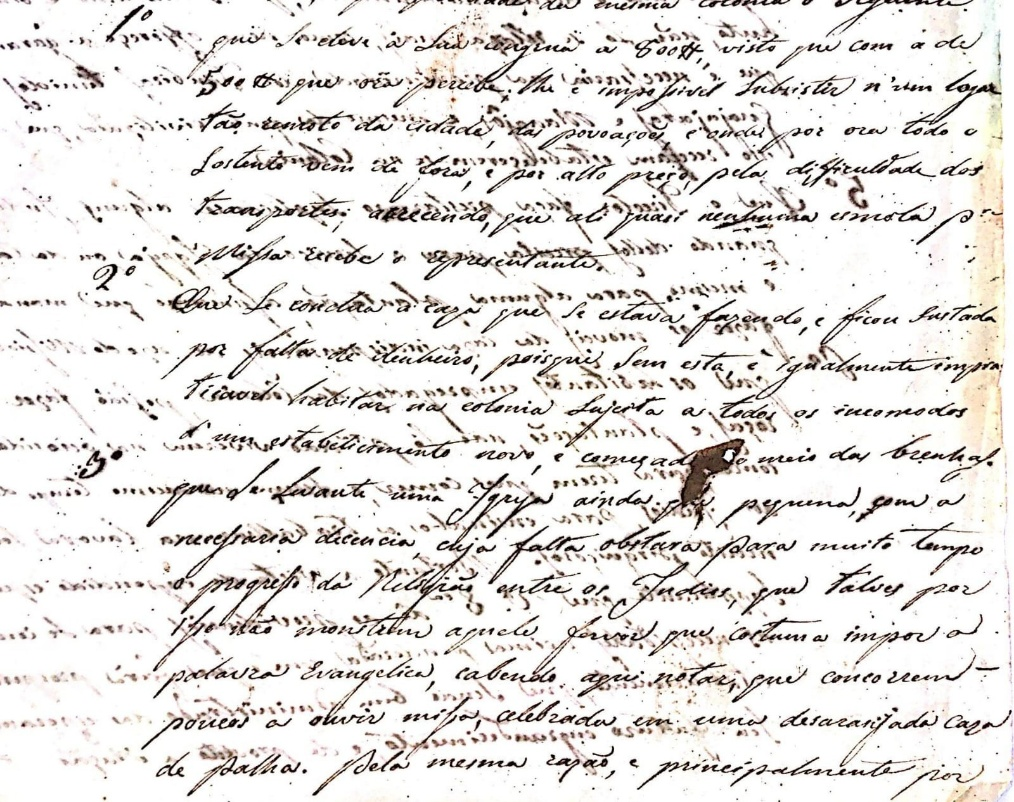 da mesma colonia o seguinte
1º
que se eleve á sua congrua a 800$, visto que com a de
500$ que óra percebe, lhe é impossivel subsistir n'um logar
tão remoto da cidade, das povoações, e onde por ora todo o
sustento vem de fora, e por alto preço, pela difficuldade dos
transportes; acrecendo, que ali quasi nenhuma esmola pr
Missa recebe o representante.
2º
Que se conclua a caza que se estava fazendo, e ficou sustada
por falta de dinheiro, poisque sem esta, é igualmente impra
ticavel habitar na colonia sujeita a todos os incomodos
d'um estabelicimento novo, e começad o meio das brenhas.
3º
que se levante uma Igreja ainda que pequena, com a
necessaria decencia, cuja falta obstará para muito tempo
o progresso da Religião entre os Indios, que talves por
isso não monstrem aquele fervor que costuma impor a
palavra Evangelica, cabendo aqui notar, que concorrem
poucos a ouvir missa, celebrada em uma desaranjada caza
de palha. Pela mesma razão, e principalmente por